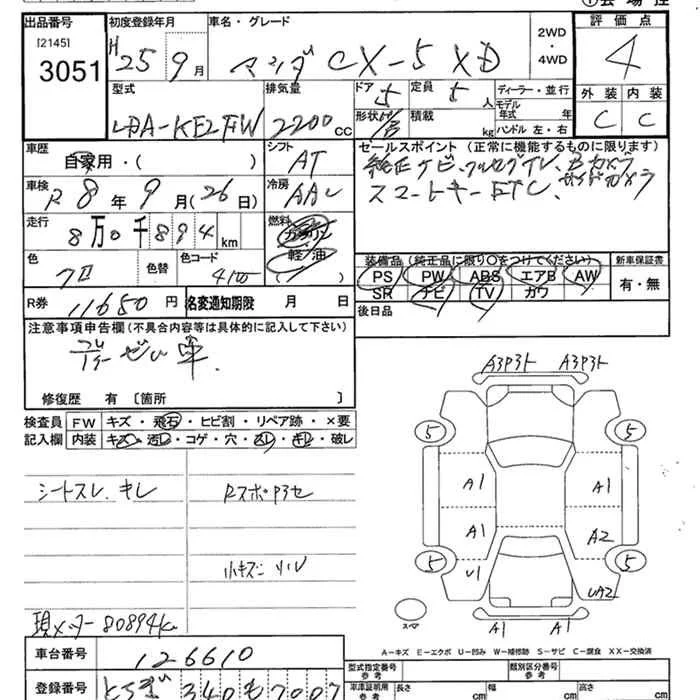 出品番号
[2145]
3051
初度登録年月
H25 9月
車名・グレード
マツダ CX-5 XD
2WD
・
4WD
評価点
4
外装 内装
C C
型式
LDA-KE2FW
排気量
2200cc
ドア
5
形状
定員
5人
積載
kg
ディーラー・並行
モデル年式 年
ハンドル 左・右
車歴
自家用・( )
シフト
AT
冷房
AAC
車検
R8年9月(26日)
走行
8万0千894km
燃料
ガソリン
軽油
( )
色
色替
色コード
R券
11650円
名変通知期限 月 日
セールスポイント (正常に機能するものに限ります)
純正ナビ、フルセグTV、Bカメラ
スマートキー ETC、サイドカメラ
装備品(純正品に限り〇をつけてください)
PS PW ABS エアB AW
SR ナビ TV カワ
新車保証書
有・無
後日品
注意事項申告欄(不具合内容等は具体的に記入して下さい)
修復歴 有 〔箇所 〕
検査員記入欄
FW キズ・飛石・ヒビ割・リペア跡・×要
内装 キズ・汚レ・コゲ・穴・スレ・キレ・破レ
シートスレ、キレ
RスポP3セ
小キズ
現メーター80894km
A3P3ト A3P3ト
5 5
A1 A1
A1 A2
5 5
U1 UA2
A1 A1
スペア
A-キズ E-エクボ U-凹み W-補修跡 S-サビ C-腐食 XX-交換済
車台番号
126610
登録番号
とちぎ 340 も 7007
型式指定番号
参考
類別区分番号
参考
車庫証明用
参考
長さ cm
幅 cm
高さ cm